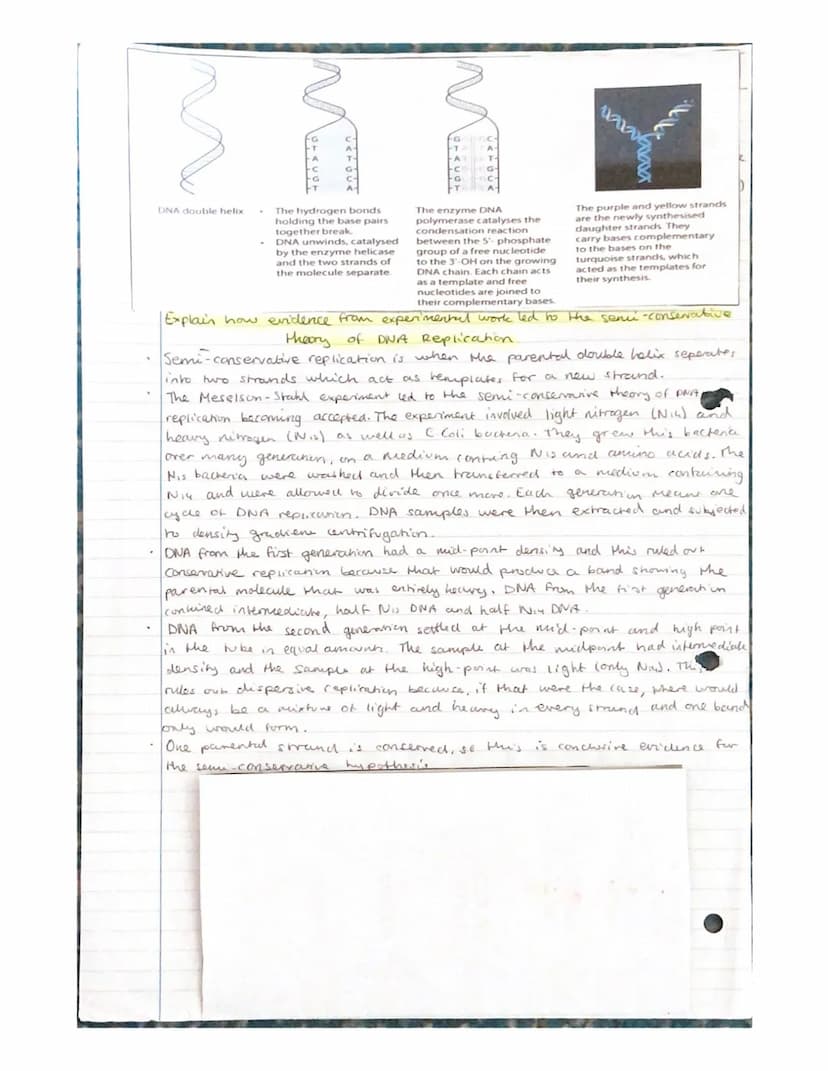 G C
T A
A T
C G
G C
T A
G C
T A
A T
C G
G C
T A
DNA double helix
• The hydrogen bonds
holding the base pairs
together break.
• DNA unwinds, catalysed
by the enzyme helicase
and the two strands of
the molecule separate.
The enzyme DNA
polymerase catalyses the
condensation reaction
between the 5'- phosphate
group of a free nucleotide
to the 3'-OH on the growing
DNA chain. Each chain acts
as a template and free
nucleotides are joined to
their complementary bases.
The purple and yellow strands
are the newly synthesised
daughter strands. They
carry bases complementary
to the bases on the
turquoise strands, which
acted as the templates for
their synthesis.
Explain how evidence from experimental work led to the semi-conservative
theory of DNA Replication
• Semi-conservative replication is when the parental double helix seperates
into two strands which act as templates for a new strand.
• The Meselson-Stahl experiment led to the semi-conservative theory of DNA
replication becoming accepted. The experiment involved light nitrogen (N14) and
heavy nitrogen (N15) as well as E Coli bacteria. They grew this bacteria
over many generation, on a medium containg N15 and amino acids. The
N15 bacteria were washed and then transferred to a medium containing
N14 and were allowed to divide once more. Each generation means one
cycle of DNA replication. DNA samples were then extracted and subjected
to density gradient centrifugation.
• DNA from the first generation had a mid-point density and this ruled out
conservative replication because that would produce a band showing the
parental molecule that was entirely heavy. DNA from the first generation
contained intermediate, half N15 DNA and half N14 DNA.
• DNA from the second generation settled at the mid-point and high point
in the tube in equal amounts. The sample at the midpoint had intermediate
density and the sample at the high-point was light (only N14). This
rules out dispersive replication because, if that were the case, there would
always be a mixture of light and heavy in every strand and one band
only would form.
• One parental strand is conserved, so this is conclusive evidence for
the semi-conservative hypothesis